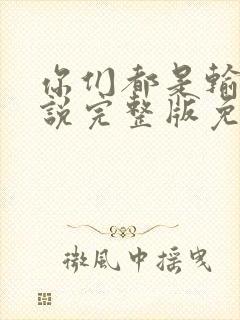 你们都是输
説完整版免
微風中摇曳